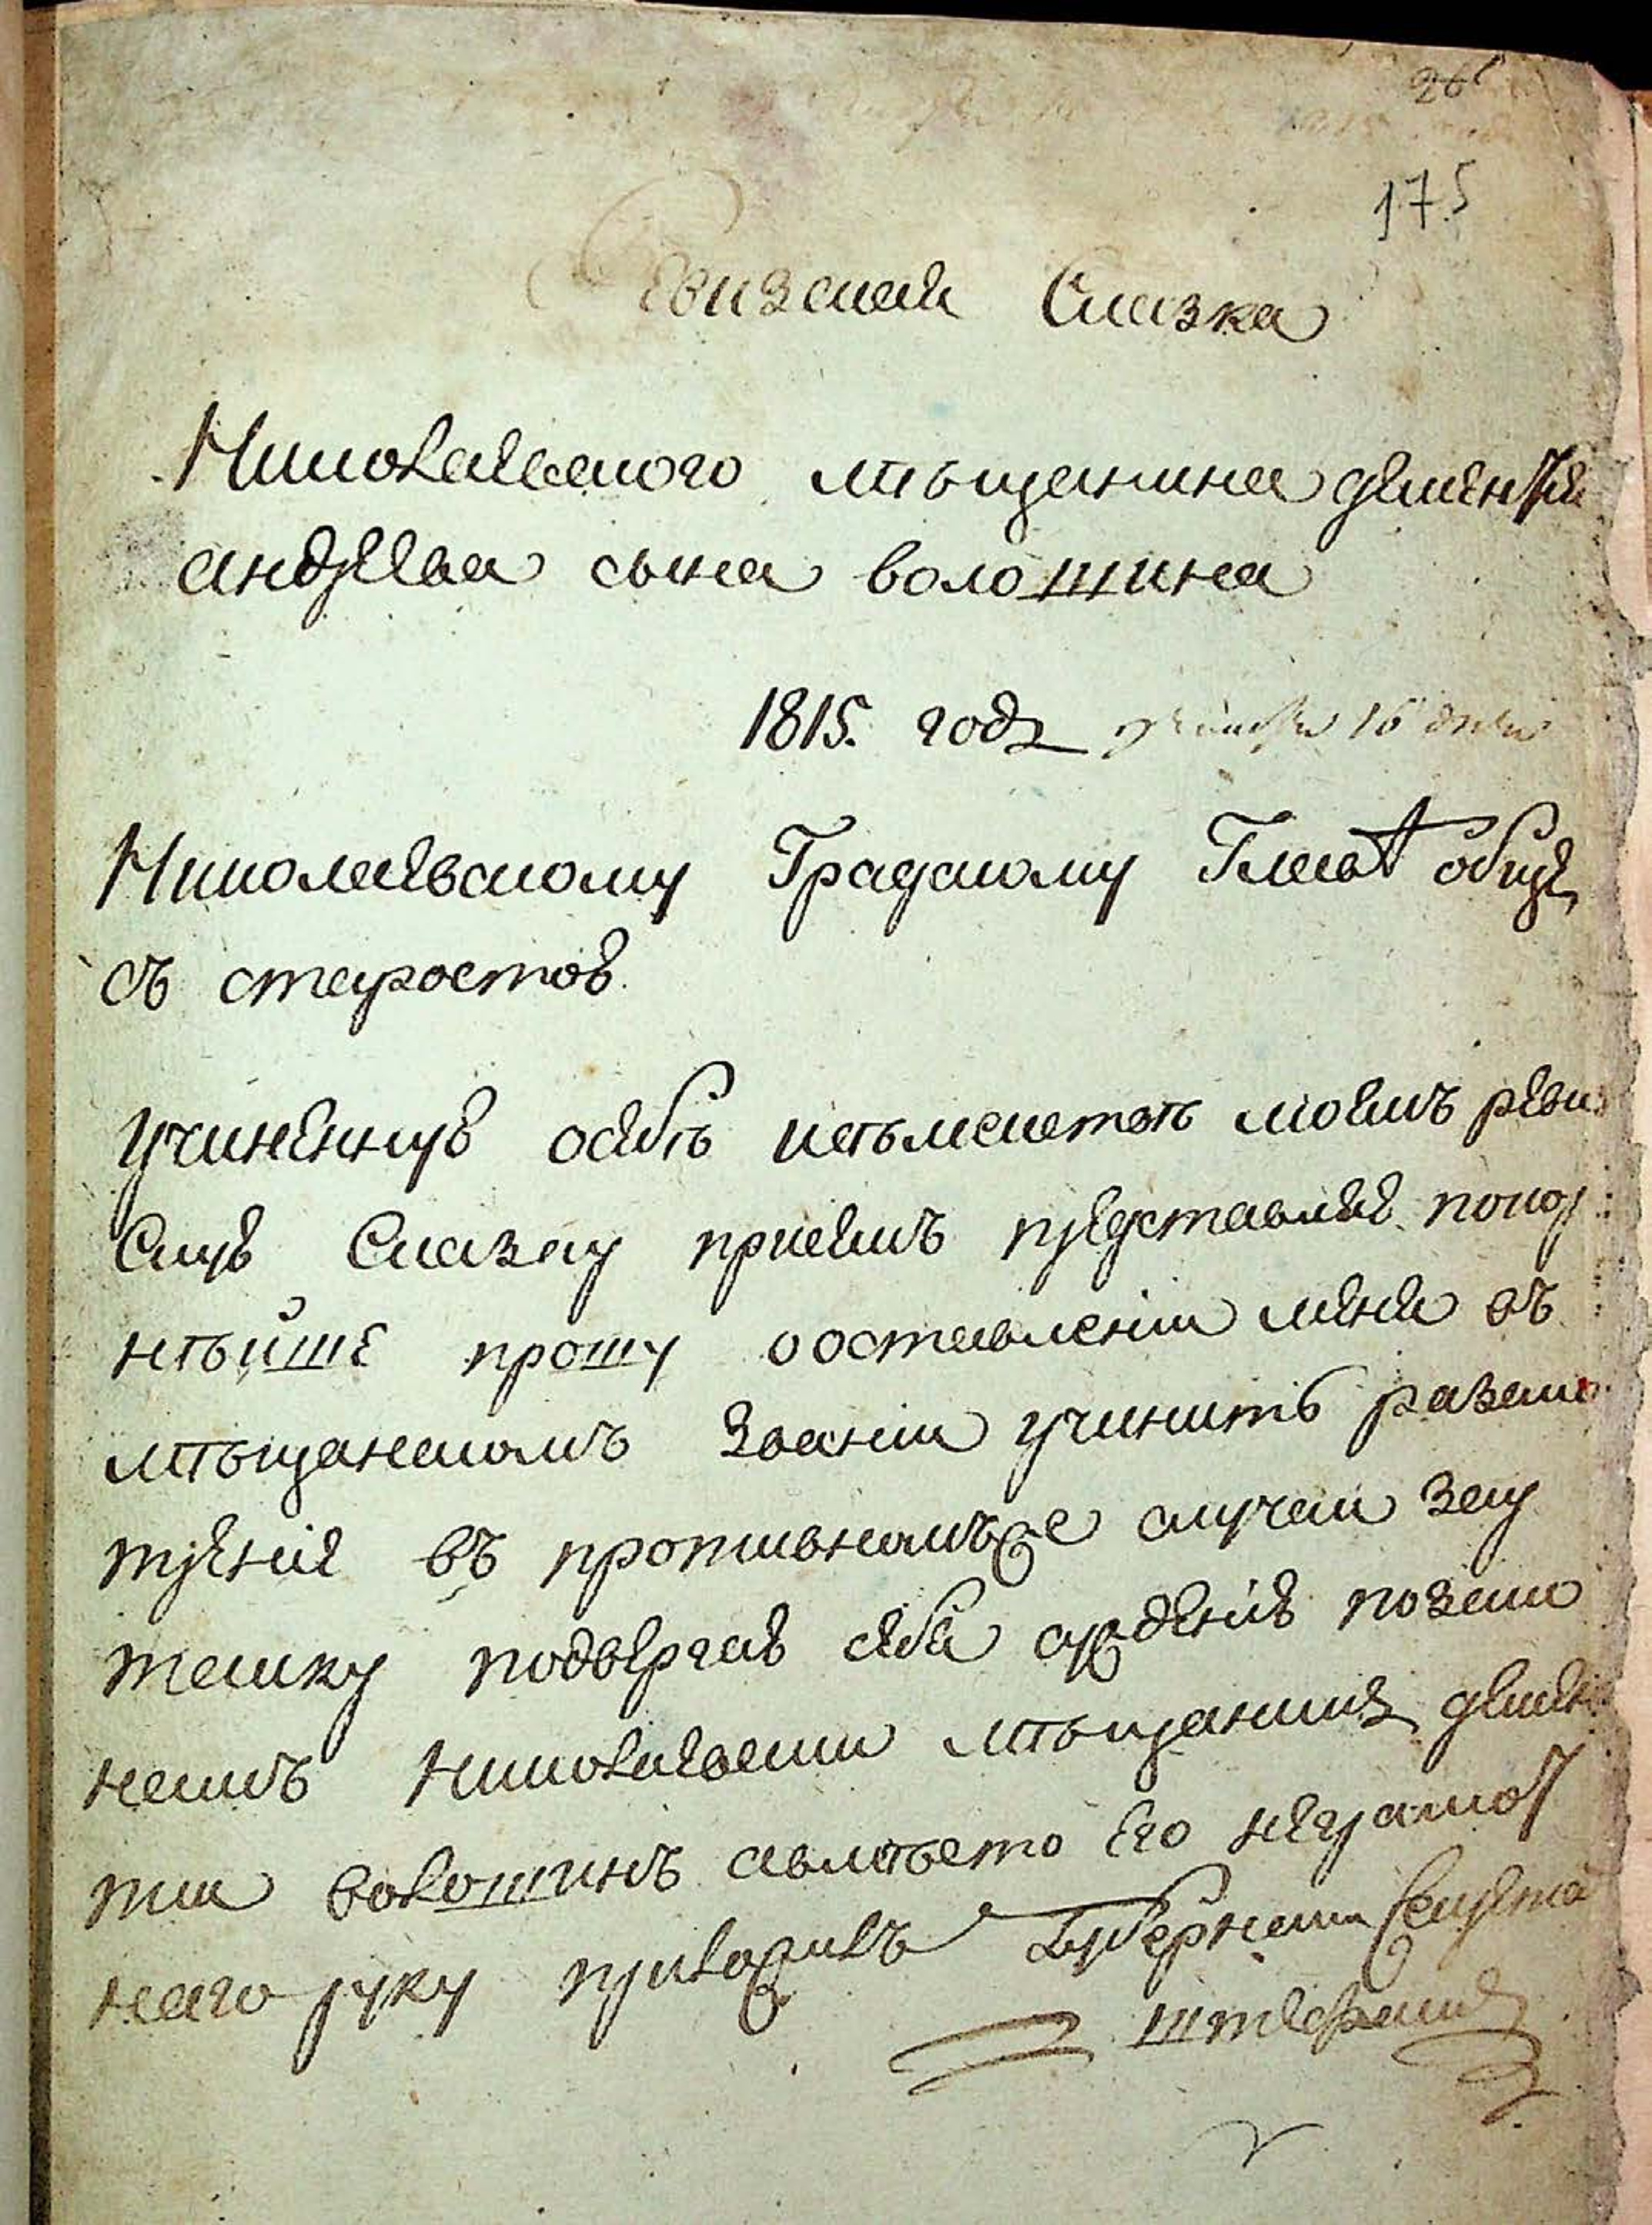 175
Ревизская Сказка
Николаевского мѣщанина дементия
андреева сына волошина
1815. года 16 дня
Николаевскому Градскому Главѣ обще
съ старостою.
Учиненную осебѣ исѣмействѣ моемъ реви
Скую Сказку присемъ представляю покор
нѣйше прошу обоставлении меня въ
мѣщанскомъ звании учинить разсмо
трение въ противномъже случаи заy
тайку подвергаю себя суждению позако
намъ николаевски мѣщанинъ демен
тии волошинъ авместо его неграмот
наго руку приложилъ Губернски Секрета
штефанив